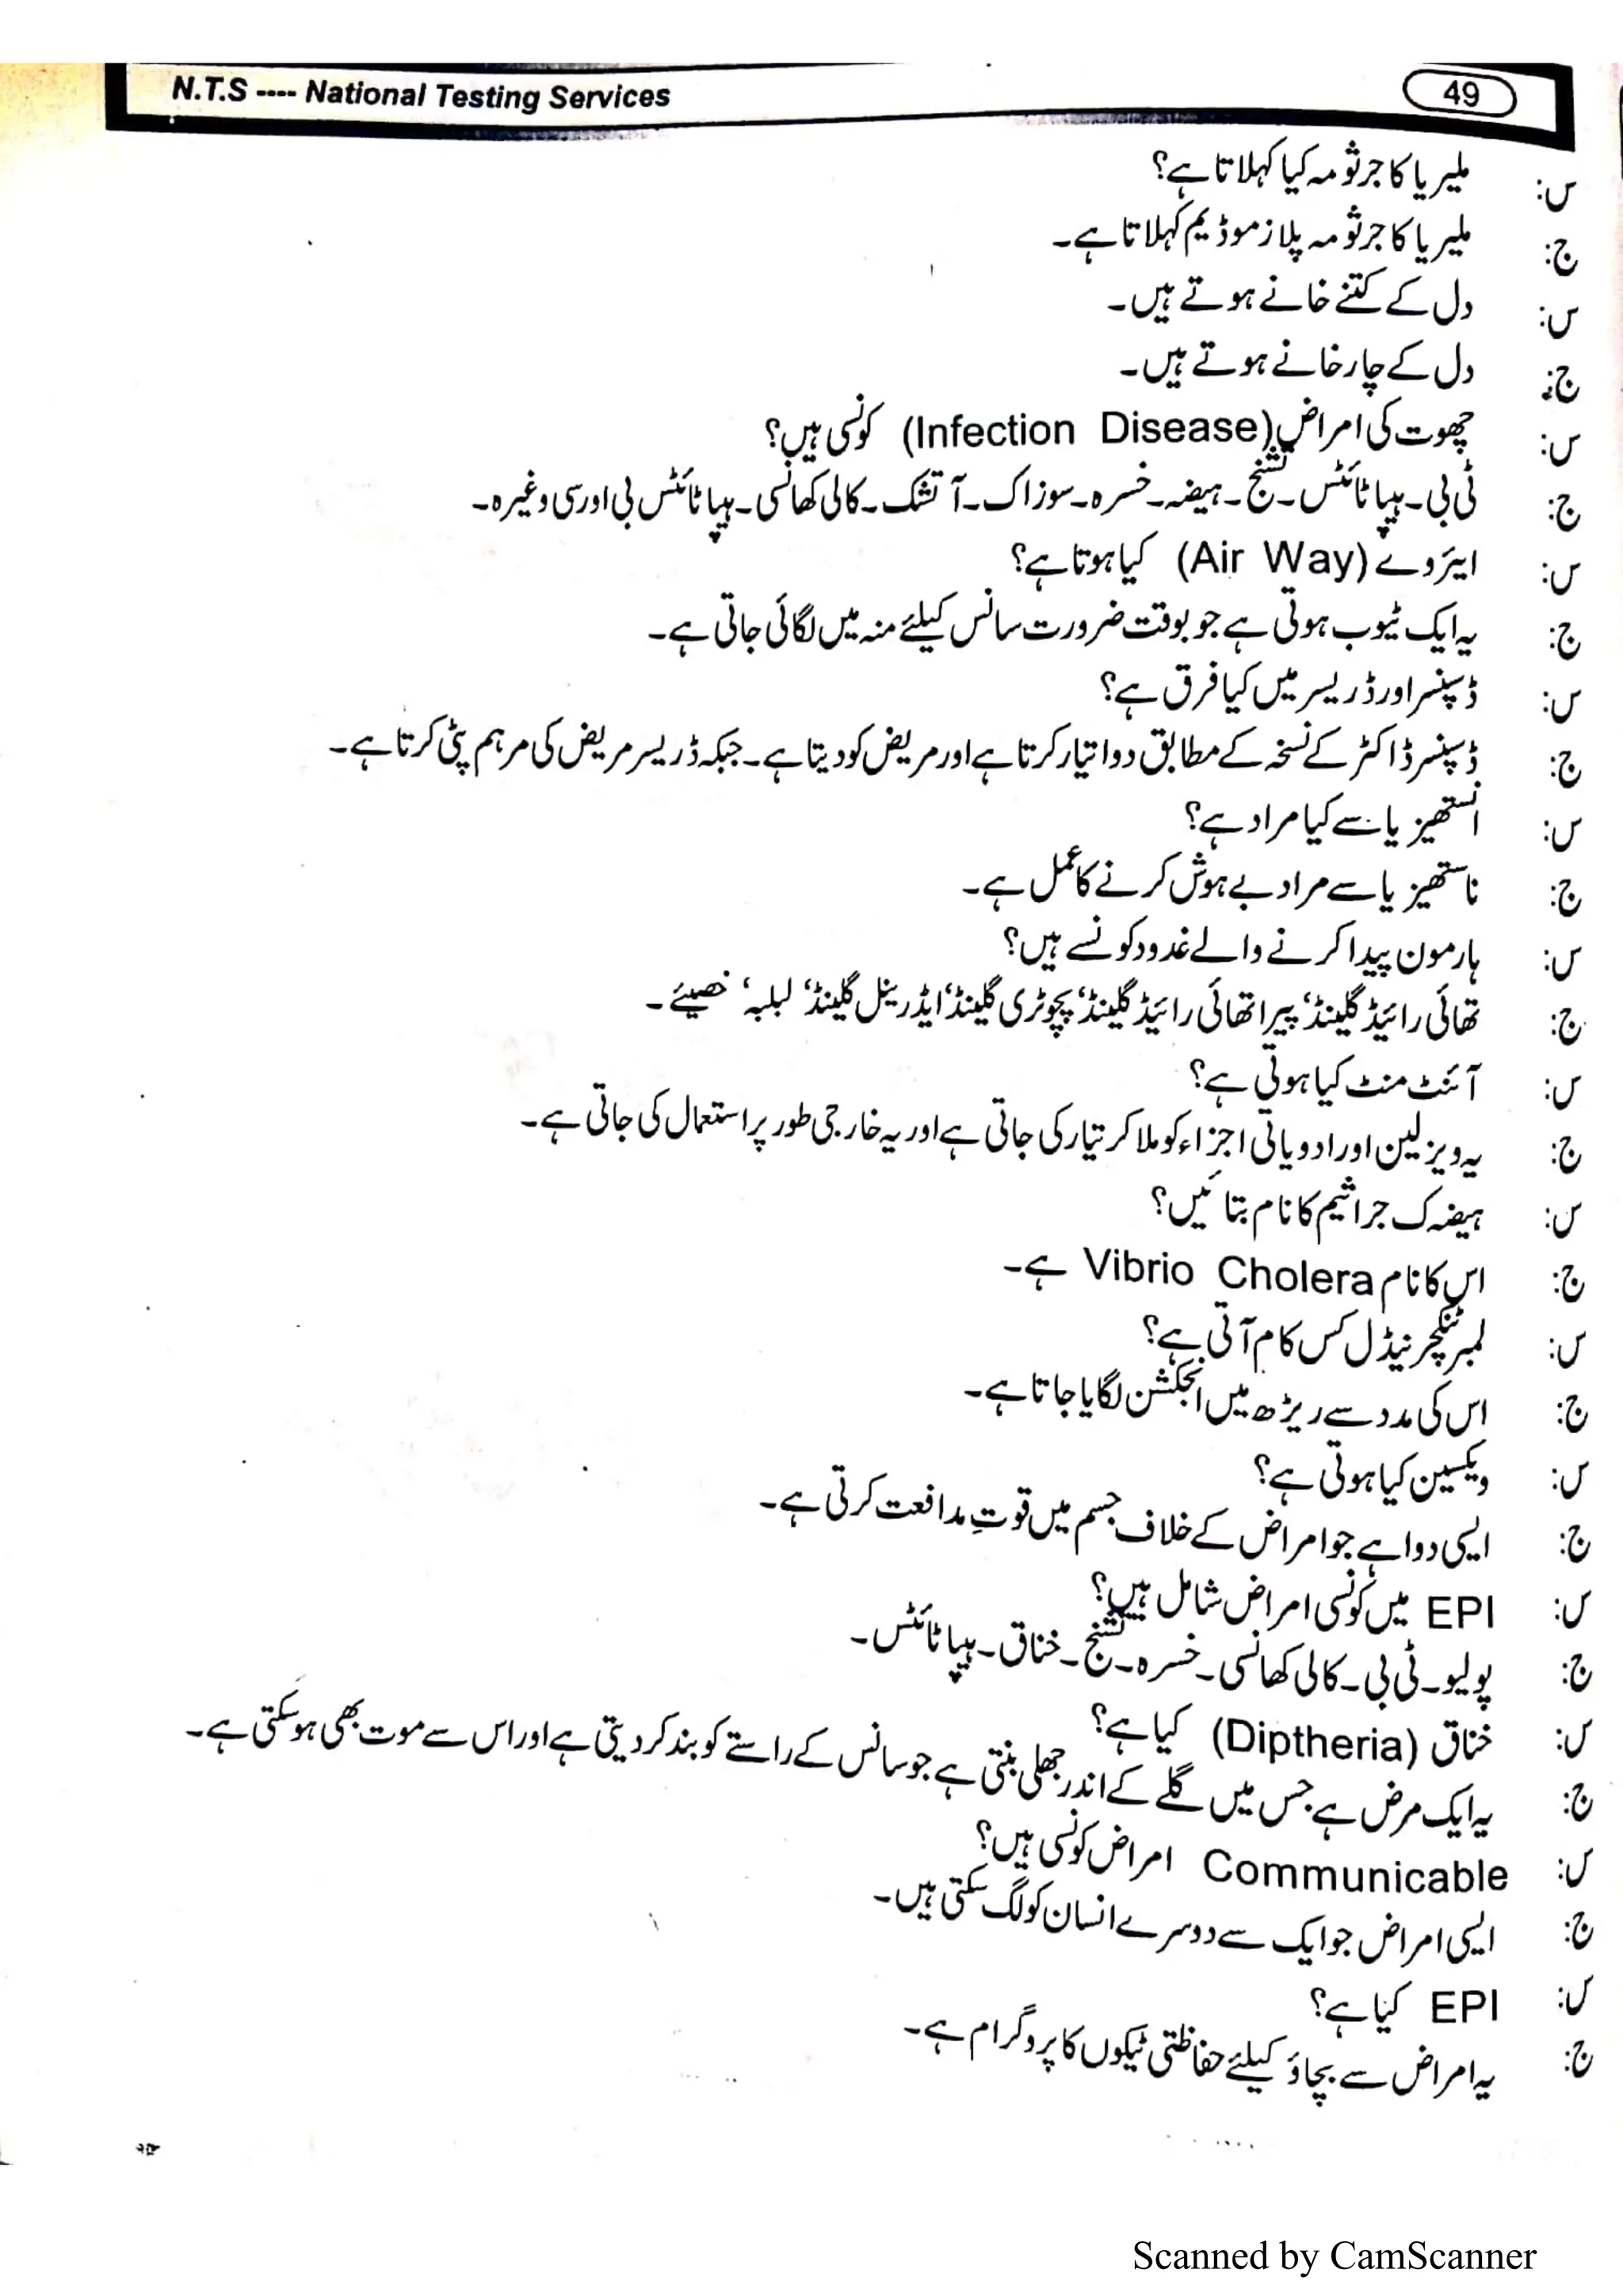 N.T.S ---- National Testing Services 49
س: ملیریا کا جرثومہ کیا کہلاتا ہے؟
ج: ملیریا کا جرثومہ پلازموڈیم کہلاتا ہے۔
س: دل کے کتنے خانے ہوتے ہیں۔
ج: دل کے چار خانے ہوتے ہیں۔
س: چھوت کی امراض (Infection Disease) کونسی ہیں؟
ج: ٹی بی۔ ہیپاٹائٹس۔ تشنج۔ ہیضہ۔ خسرہ۔ سوزاک۔ آتشک۔ کالی کھانسی۔ ہیپاٹائٹس بی اور سی وغیرہ۔
س: ایئروے (Air Way) کیا ہوتا ہے؟
ج: یہ ایک ٹیوب ہوتی ہے جو بوقت ضرورت سانس کیلئے منہ میں لگائی جاتی ہے۔
س: ڈسپنسر اور ڈریسر میں کیا فرق ہے؟
ج: ڈسپنسر ڈاکٹر کے نسخہ کے مطابق دوا تیار کرتا ہے اور مریض کو دیتا ہے۔ جبکہ ڈریسر مریض کی مرہم پٹی کرتا ہے۔
س: انستھیزیا سے کیا مراد ہے؟
ج: ناستھیزیا سے مراد بے ہوش کرنے کا عمل ہے۔
س: ہارمون پیدا کرنے والے غدود کونسے ہیں؟
ج: تھائی رائیڈ گلینڈ، پیراتھائی رائیڈ گلینڈ، پچوٹری گلینڈ، ایڈرینل گلینڈ، لبلبہ، خصیئے۔
س: آئنٹ منٹ کیا ہوتی ہے؟
ج: یہ ویزلین اور ادویاتی اجزاء کو ملا کر تیار کی جاتی ہے اور یہ خارجی طور پر استعمال کی جاتی ہے۔
س: ہیضہ ک جراثیم کا نام بتائیں؟
ج: اس کا نام Vibrio Cholera ہے۔
س: لمبر پنکچر نیڈل کس کام آتی ہے؟
ج: اس کی مدد سے ریڑھ میں انجکشن لگایا جاتا ہے۔
س: ویکسین کیا ہوتی ہے؟
ج: ایسی دوا ہے جو امراض کے خلاف جسم میں قوتِ مدافعت کرتی ہے۔
س: EPI میں کونسی امراض شامل ہیں؟
ج: پولیو۔ ٹی بی۔ کالی کھانسی۔ خسرہ۔ تشنج۔ خناق۔ ہیپاٹائٹس۔
س: خناق (Diptheria) کیا ہے؟
ج: یہ ایک مرض ہے جس میں گلے کے اندر جھلی بنتی ہے جو سانس کے راستے کو بند کر دیتی ہے اور اس سے موت بھی ہو سکتی ہے۔
س: Communicable امراض کونسی ہیں؟
ج: ایسی امراض جو ایک سے دوسرے انسان کو لگ سکتی ہیں۔
س: EPI کیا ہے؟
ج: یہ امراض سے بچاؤ کیلئے حفاظتی ٹیکوں کا پروگرام ہے۔
Scanned by CamScanner